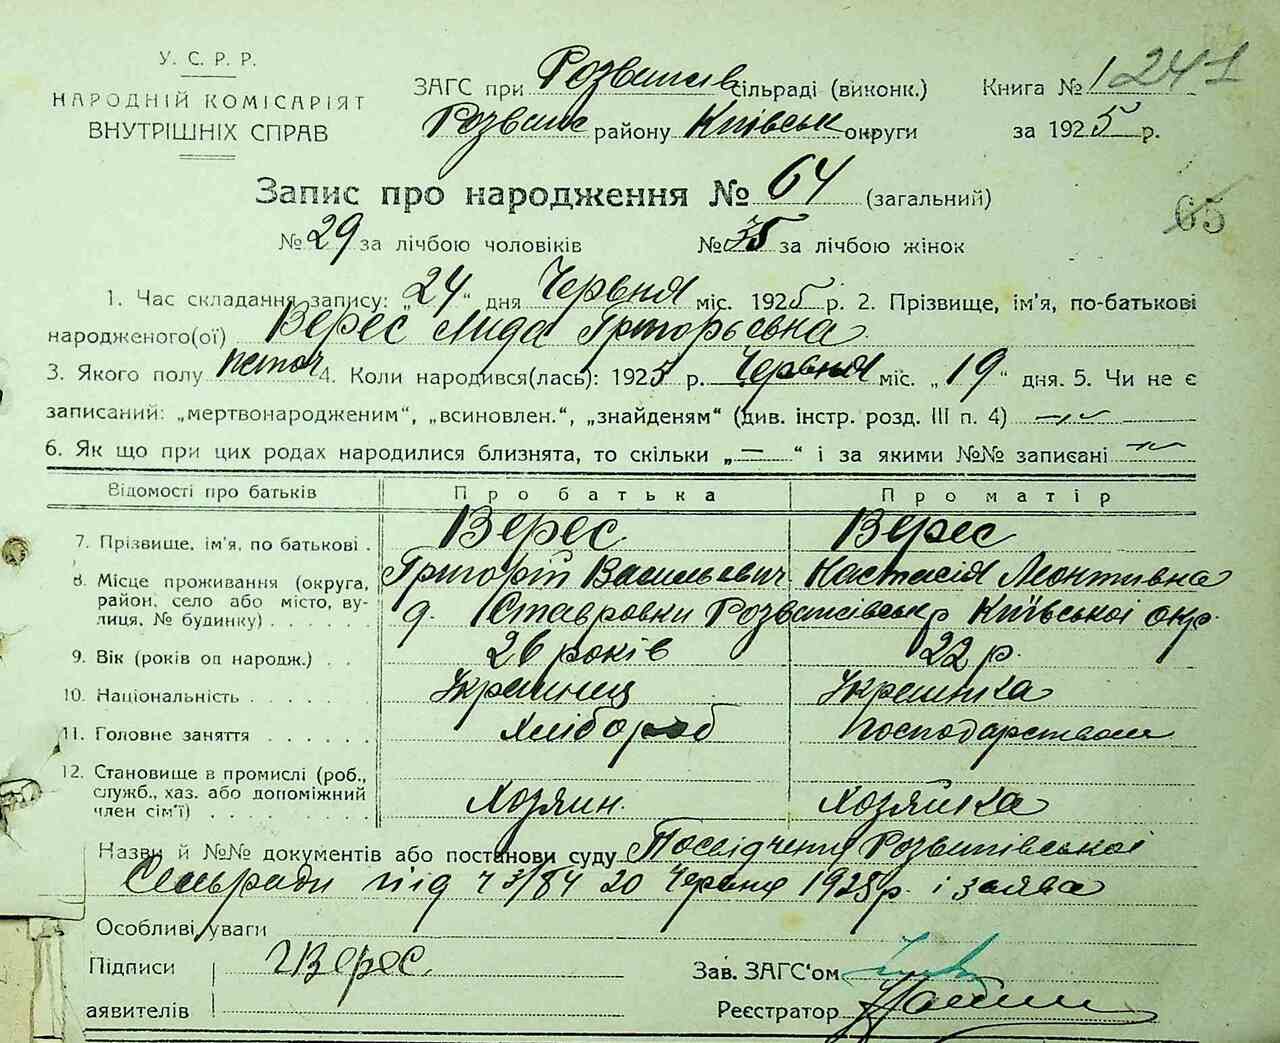 У. С. Р. Р.
НАРОДНІЙ КОМІСАРІЯТ
ВНУТРІШНІХ СПРАВ
ЗАГС при Розважів сільраді (виконк.)
Розваж району Київськ округи
Книга № 1 241
за 1925 р.
Запис про народження № 64 (загальний)
65
№ 29 за лічбою чоловіків № 35 за лічбою жінок
1. Час складання запису: „24“ дня Червня міс. 1925 р. 2. Прізвище, ім'я, по-батькові
народженого(ої) Верес Лида Григорьевна
3. Якого полу жіноч 4. Коли народився(лась): 1925 р. Червня міс. „19“ дня. 5. Чи не є
записаний: „мертвонародженим“, „всиновлен.“, „знайденям“ (див. інстр. розд. III п. 4)
6. Як що при цих родах народилися близнята, то скільки „—“ і за якими №№ записані
Відомості про батьків Про батька Про матір
7. Прізвище, ім'я, по батькові . Верес Верес
Григорій Васильевич Настасія Леонтивна
8. Місце проживання (округа, район, село або місто, вулиця, № будинку) . . . . . д. Ставровки Розважівськ р Київської окр.
9. Вік (років од народж.) . . 26 років 22 р.
10. Національність . . . . . Українец Українка
11. Головне заняття . . . . . . Хлібороб Господарством
12. Становище в промислі (роб., служб., хаз. або допоміжний член сім'ї) . . . . . . . . Хозяин. Хозяйка
Назви й №№ документів або постанови суду Посвідчення Розважівської
Сельради під ч 3/84 20 Червня 1925 р. і заява
Особливі уваги
Підписи Г Верес Зав. ЗАГС'ом
аявителів Реєстратор